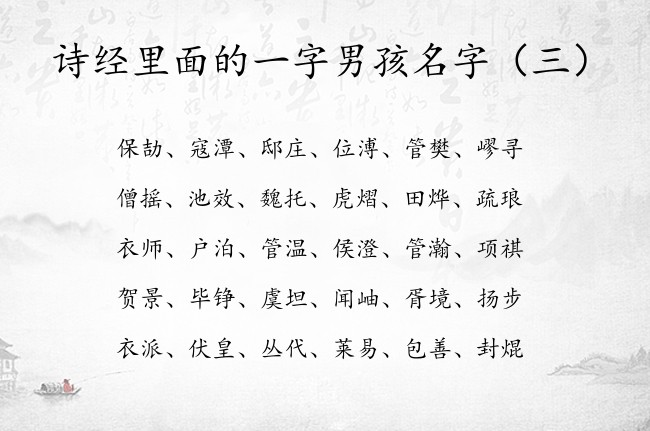 诗经里面的一字男孩名字（三）
保劼、寇潭、邸庄、位溥、管樊、嵺寻
僧摇、池效、魏托、虎熠、田烨、疏琅
衣师、户泊、管温、侯澄、管瀚、项祺
贺景、毕铮、虞坦、闻岫、胥境、扬步
衣派、伏皇、丛代、莱易、包善、封焜